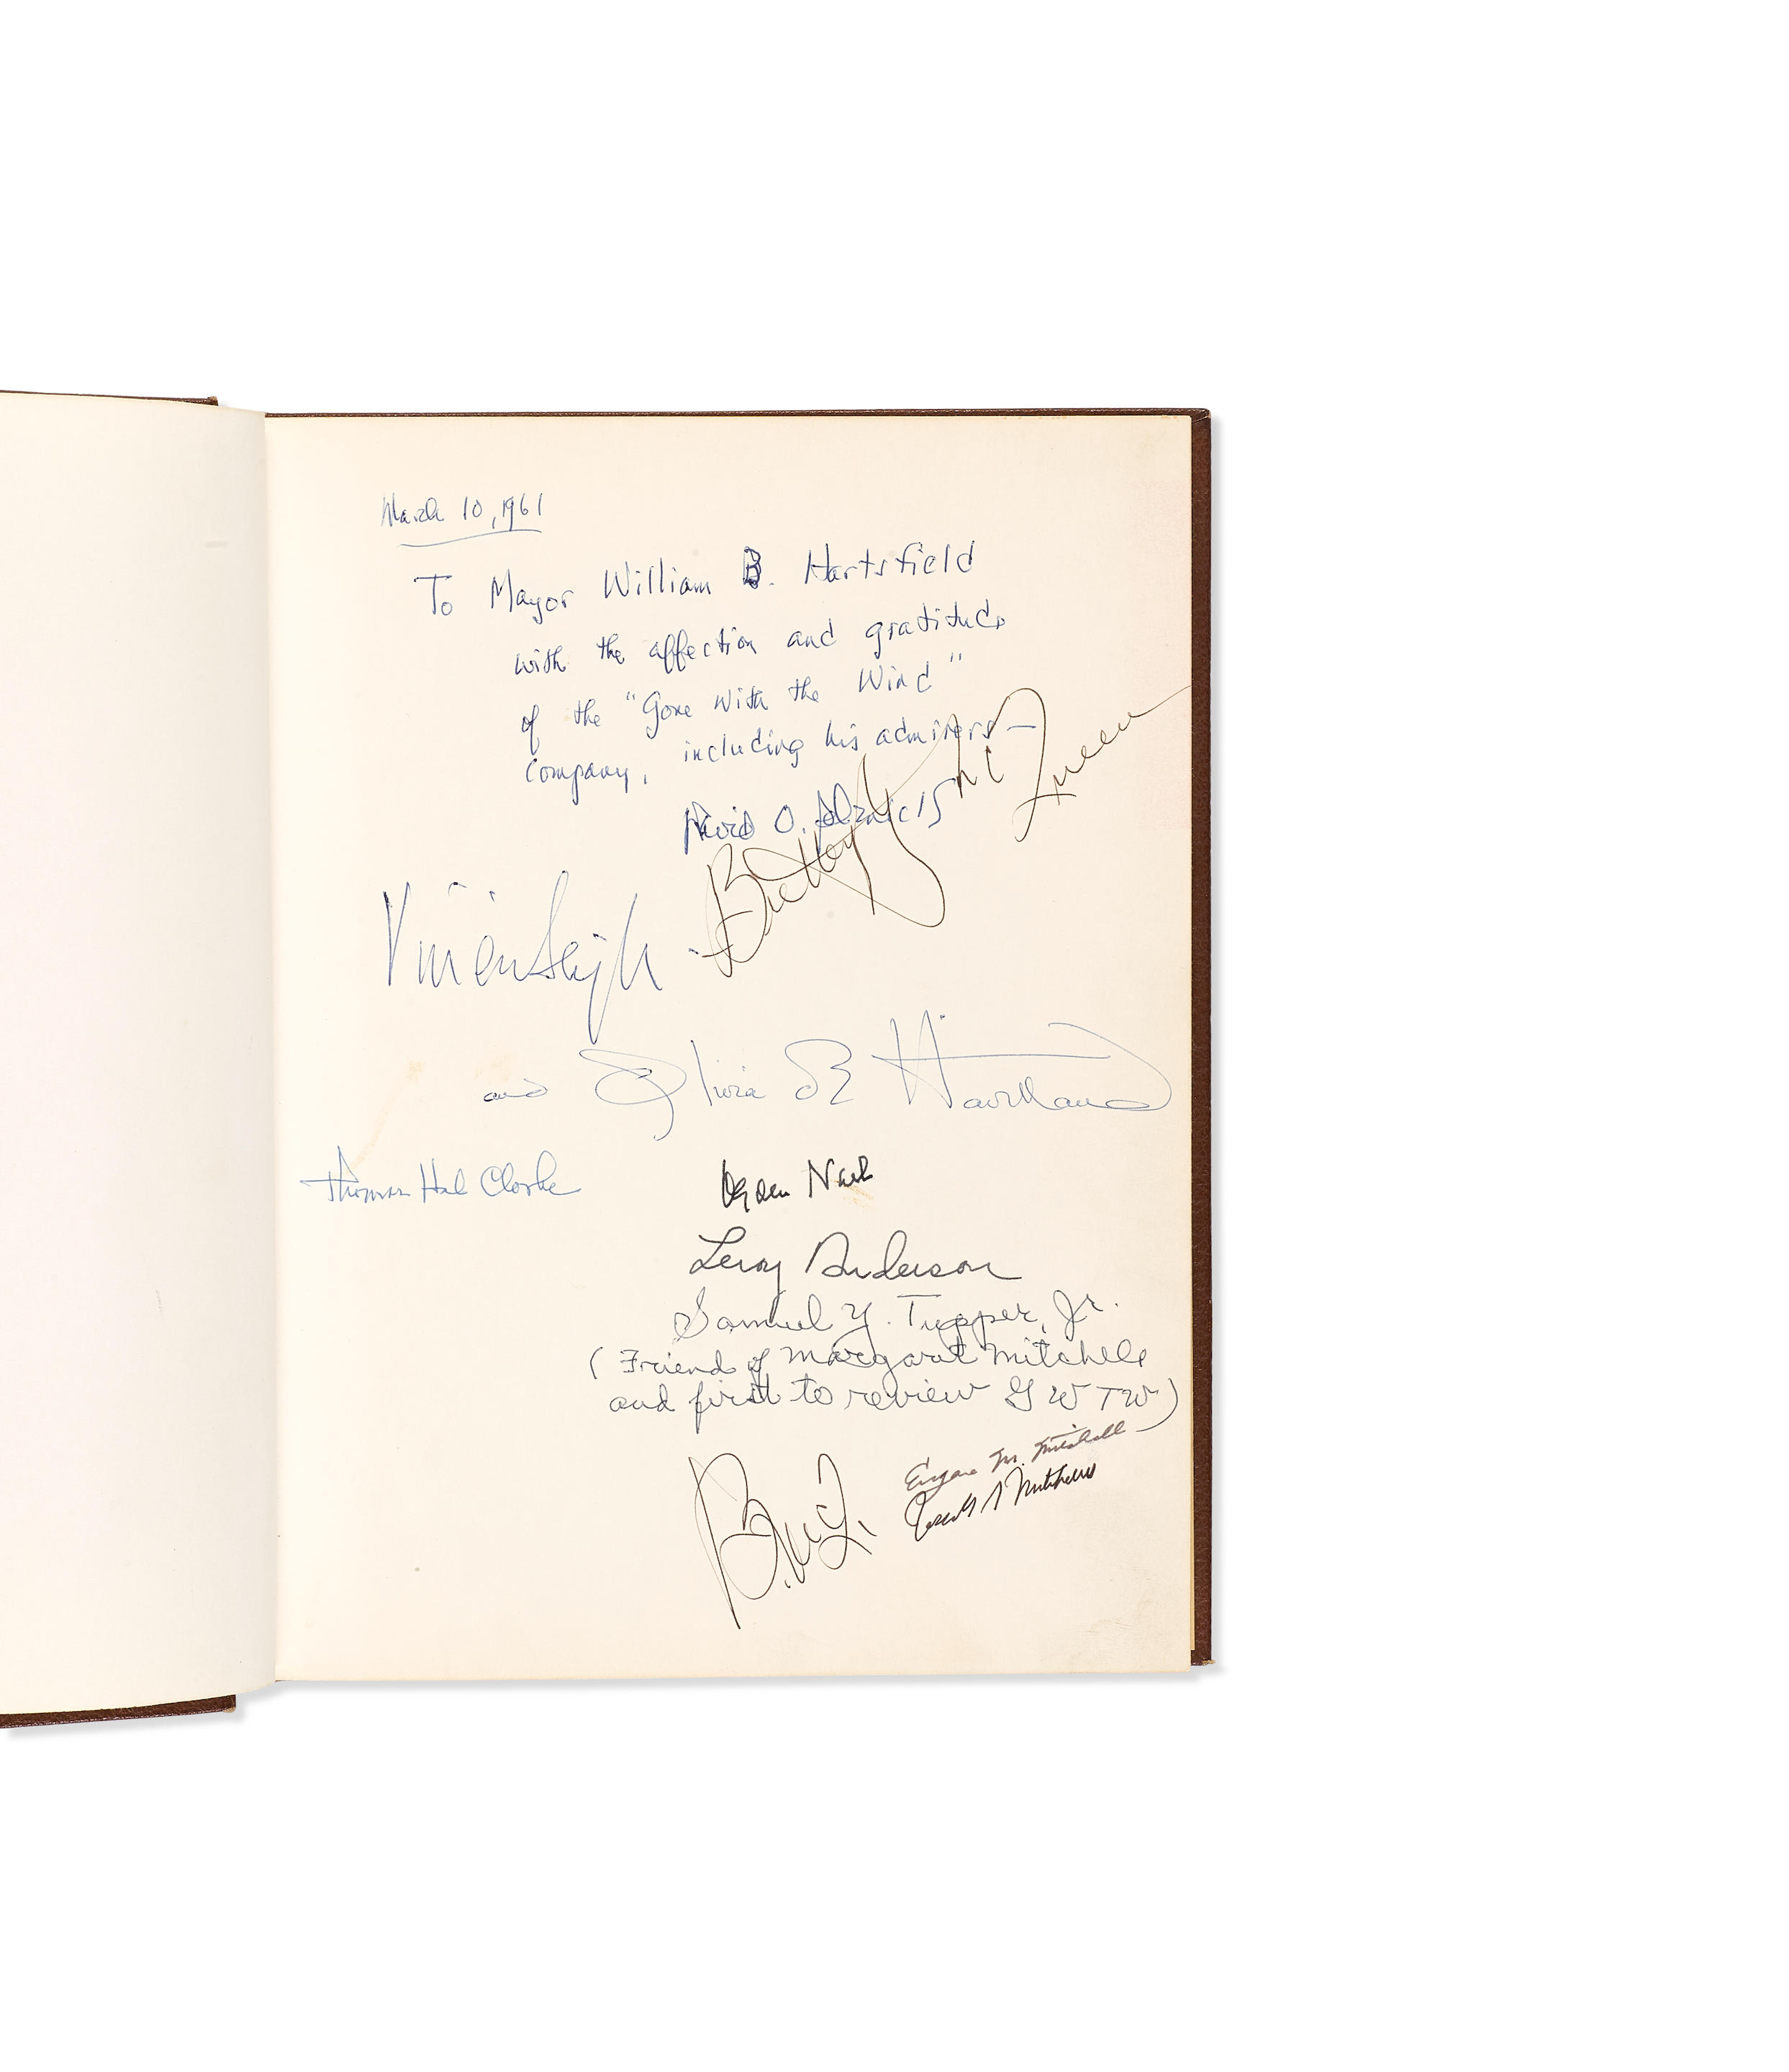 March 10, 1961
To Mayor William B. Hartsfield
with the affection and gratitude
of the "Gone with the Wind"
Company, including his admirers—
David O. Selznick
Butterfly McQueen
Vivien Leigh
and Olivia de Havilland
Thomas Hal Clarke
Ogden Nash
Leroy Anderson
Samuel Y. Tupper, Jr.
(Friend of Margaret Mitchell
and first to review GWTW)
Eugene M. Mitchell
Mitchell